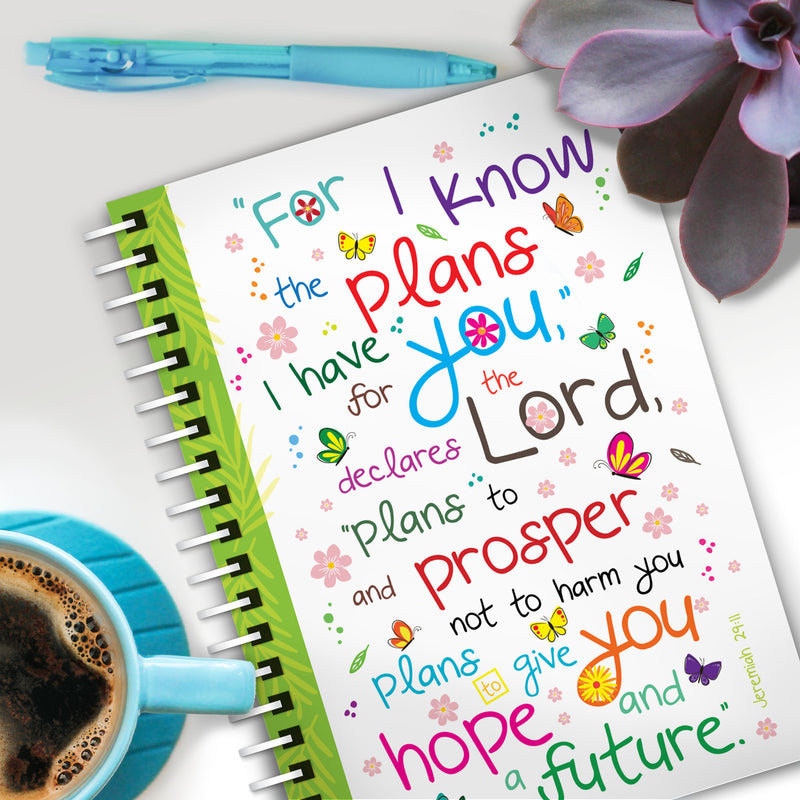 "For I know
the plans
I have for you,"
declares the Lord,
"plans to
and prosper
not to harm you
plans to give you
hope and
a future".
Jeremiah 29:11